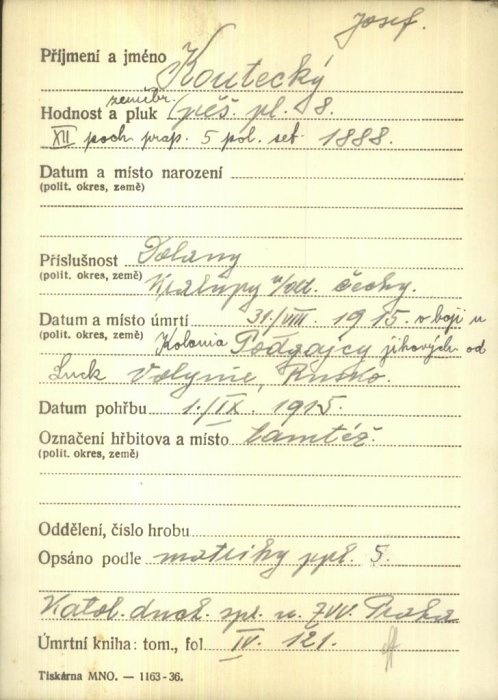 Josef.
Příjmení a jméno Koutecký
zeměbr.
Hodnost a pluk pěš. pl. 8.
XII poch prap. 5 pol. set. 1888.
Datum a místo narození
(polit. okres, země)
Příslušnost Dolany
(polit. okres, země) Kralupy n/Vlt. Čechy.
Datum a místo úmrtí 31./VIII. 1915. v boji u
(polit. okres, země) Kolonia Podgajcy jihových. od
Luck Volynie, Rusko.
Datum pohřbu 1./IX. 1915.
Označení hřbitova a místo tamtéž.
(polit. okres, země)
Oddělení, číslo hrobu
Opsáno podle matriky ppl. 5.
Katol. duch. spr. u ZVV. Praha
Úmrtní kniha: tom., fol IV. 121.
Tiskárna MNO. — 1163-36.